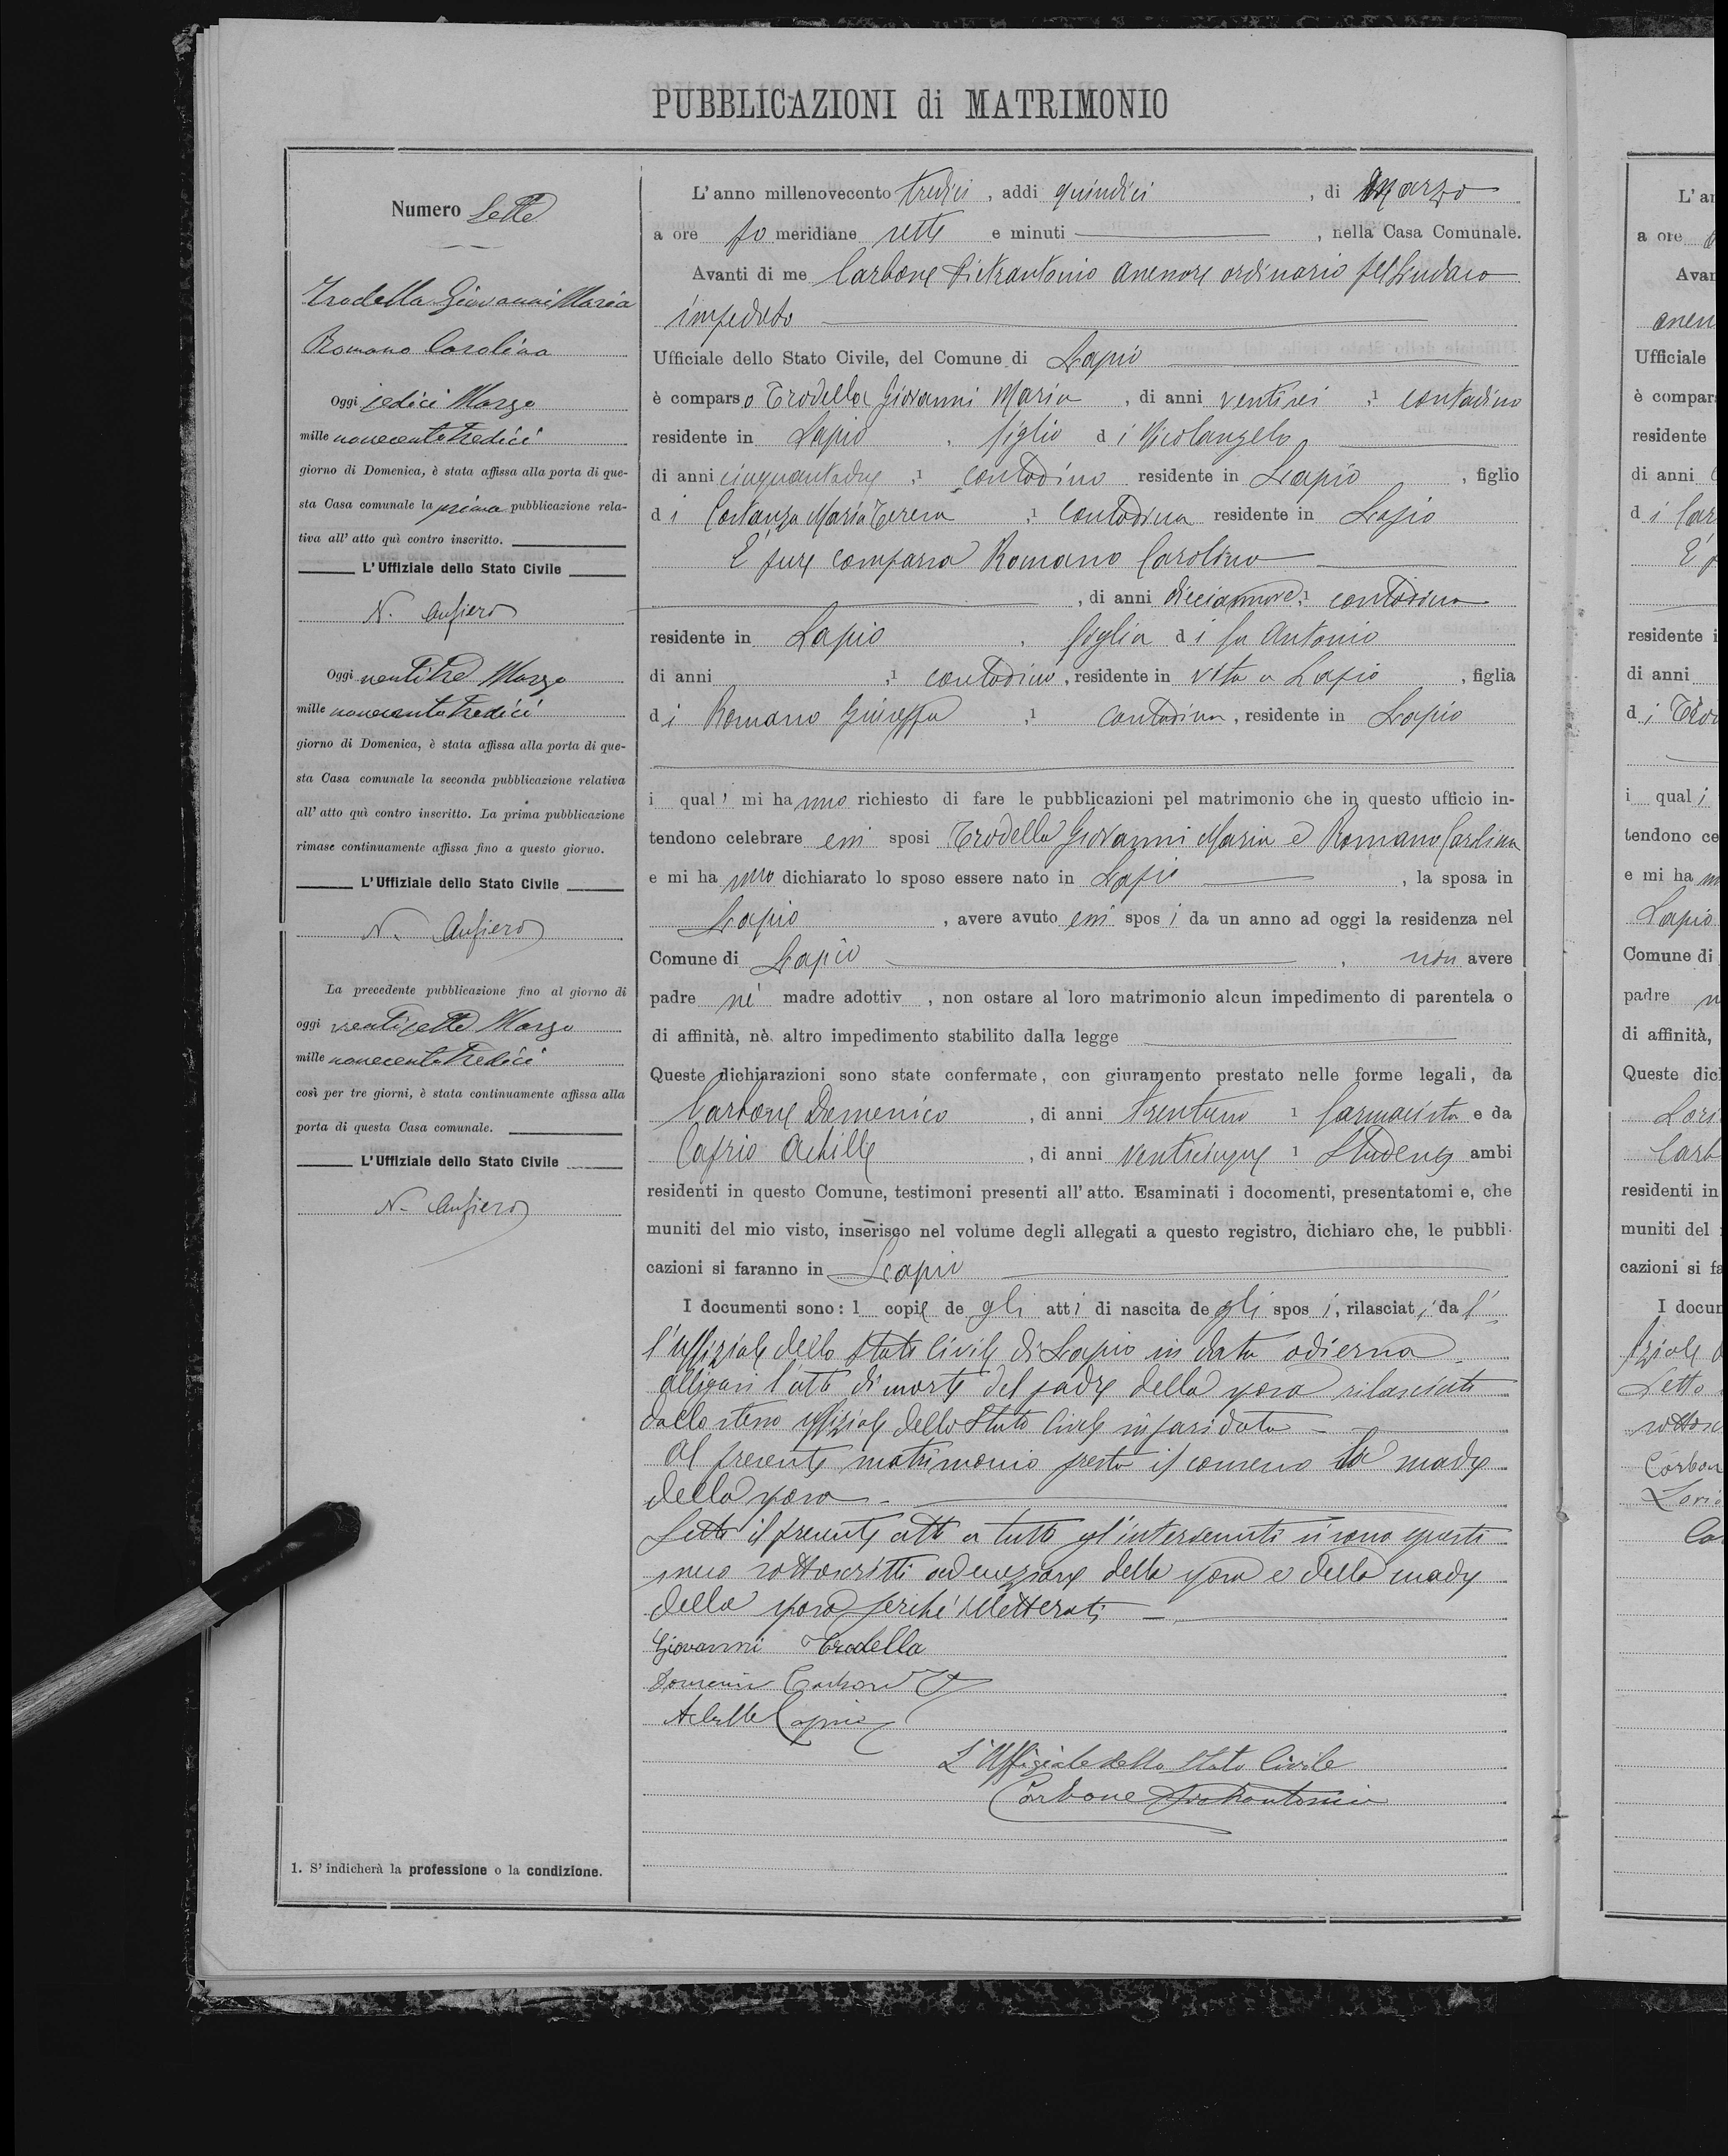 PUBBLICAZIONI di MATRIMONIO
Numero Sette
Trodella Giovanni Maria
Romano Carolina
Oggi sedici Marzo
mille novecentotredici
giorno di Domenica, è stata affissa alla porta di que-
sta Casa comunale la prima pubblicazione rela-
tiva all' atto quì contro inscritto.
L'Uffiziale dello Stato Civile
N. Anfiero
Oggi ventitre Marzo
mille novecentotredici
giorno di Domenica, è stata affissa alla porta di que-
sta Casa comunale la seconda pubblicazione relativa
all' atto quì contro inscritto. La prima pubblicazione
rimase continuamente affissa fino a questo giorno.
L'Uffiziale dello Stato Civile
N. Anfiero
La precedente pubblicazione fino al giorno di
oggi ventisette Marzo
mille novecentotredici
così per tre giorni, è stata continuamente affissa alla
porta di questa Casa comunale.
L'Uffiziale dello Stato Civile
N. Anfiero
1. S' indicherà la professione o la condizione.
L' anno millenovecento tredici, addi quindici, di Marzo
a ore po meridiane sette e minuti, nella Casa Comunale.
Avanti di me Carbone Pietrantonio assessore ordinario pel Sindaco
impedito
Ufficiale dello Stato Civile, del Comune di Lapio
è comparso Trodella Giovanni Maria, di anni ventisei, 1 contadino
residente in Lapio, figlio di Nicolangelo
di anni cinquantadue, 1 contadino residente in Lapio, figlio
di Costanza Maria Teresa, 1 contadina residente in Lapio
È pure comparsa Romano Carolina
, di anni diciannove, 1 contadina
residente in Lapio, figlia di fu Antonio
di anni, 1 contadino, residente in vita a Lapio, figlia
di Romano Giuseppa, 1 contadina, residente in Lapio
i quali mi hanno richiesto di fare le pubblicazioni pel matrimonio che in questo ufficio in-
tendono celebrare essi sposi Trodella Giovanni Maria e Romano Carolina
e mi hanno dichiarato lo sposo essere nato in Lapio, la sposa in
Lapio, avere avuto essi sposi da un anno ad oggi la residenza nel
Comune di Lapio, non avere
padre nè madre adottiv, non ostare al loro matrimonio alcun impedimento di parentela o
di affinità, nè altro impedimento stabilito dalla legge
Queste dichiarazioni sono state confermate, con giuramento prestato nelle forme legali, da
Carbone Domenico, di anni trentuno 1 farmacista e da
Caprio Achille, di anni venticinque 1 Studente ambi
residenti in questo Comune, testimoni presenti all' atto. Esaminati i documenti, presentatomi e, che
muniti del mio visto, inserisco nel volume degli allegati a questo registro, dichiaro che, le pubbli-
cazioni si faranno in Lapio
I documenti sono: 1 copie de gli atti di nascita de gli sposi, rilasciati da l'
l'Uffiziale dello Stato Civile di Lapio in data odierna
alligasi l'atto di morte del padre della sposa rilasciato
dallo stesso uffiziale dello Stato Civile in pari data
Al presente matrimonio presta il consenso la madre
della sposa
Letto il presente atto a tutti gl'intervenuti si sono questi
meco sottoscritti ad eccezione della sposa e della madre
della sposa perché illetterati
Giovanni Trodella
Domenico Carbone
Achille Caprio
L'Uffiziale dello Stato Civile
Carbone Pietrantonio
L' a
a ore
Avan
assen
Ufficiale
è compar
residente
di anni
di Car
È p
residente i
di anni
di Trod
i quali
tendono ce
e mi ha nn
Lapio
Comune di
padre n
di affinità,
Queste dic
Carb
residenti in
muniti del
cazioni si fa
I docum
fiziale d
Letto
sottosc
Carbon